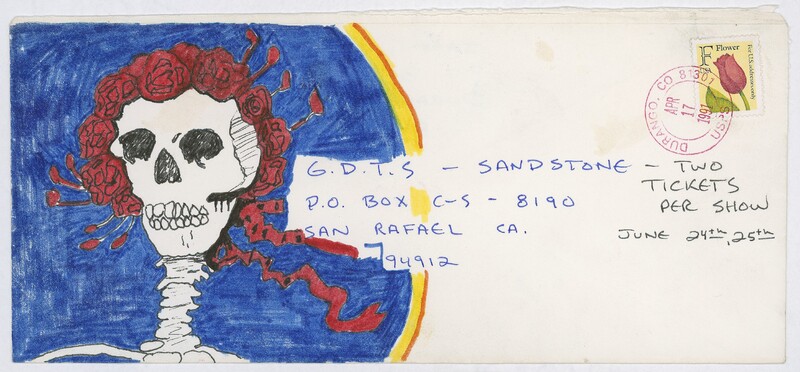 F Flower
For U.S. addresses only
DURANGO, CO 81301
APR
17
1991
USPS
G.D.T.S - SANDSTONE - TWO
TICKETS
PER SHOW
P.O. BOX C-S - 8190
SAN RAFAEL CA.
94912
JUNE 24th, 25th